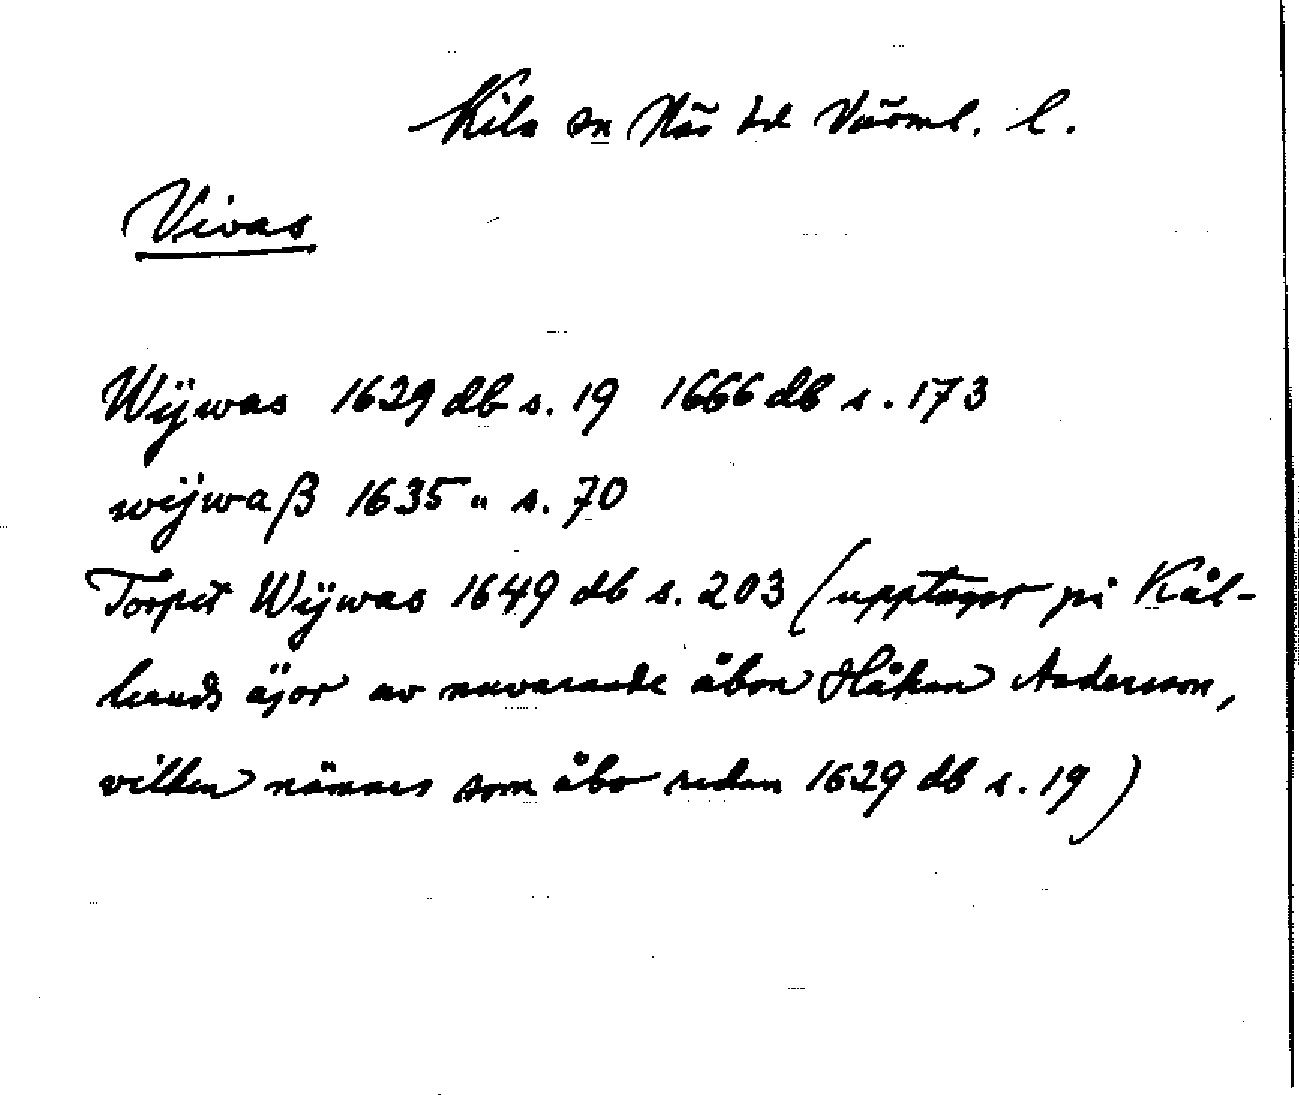 Kila sn Näs hd Värml. l.
Vivas
Wÿwas 1629 db s. 19 1666 db s. 173
wÿwaß 1635 " s. 70
Torpet Wÿwas 1649 db s. 203 (upptaget på Kål-
lunds äjor av nuvarande åbon Håkan Andersson,
vilken nämnes som åbo redan 1629 db s. 19)